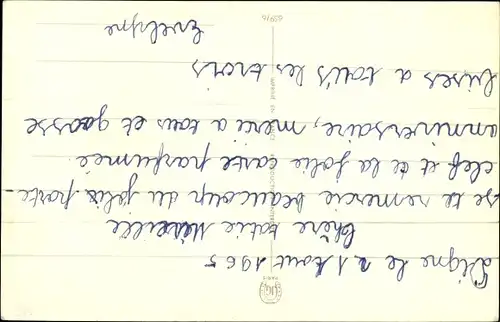 Digne le 21 Aout 1965
Chère tatie Mireille
Je te remercie beaucoup du jolie porte-
clef et de la jolie carte parfumée
anniversaire, merci a tous et grosse
bises a tous les trois
Evelyne